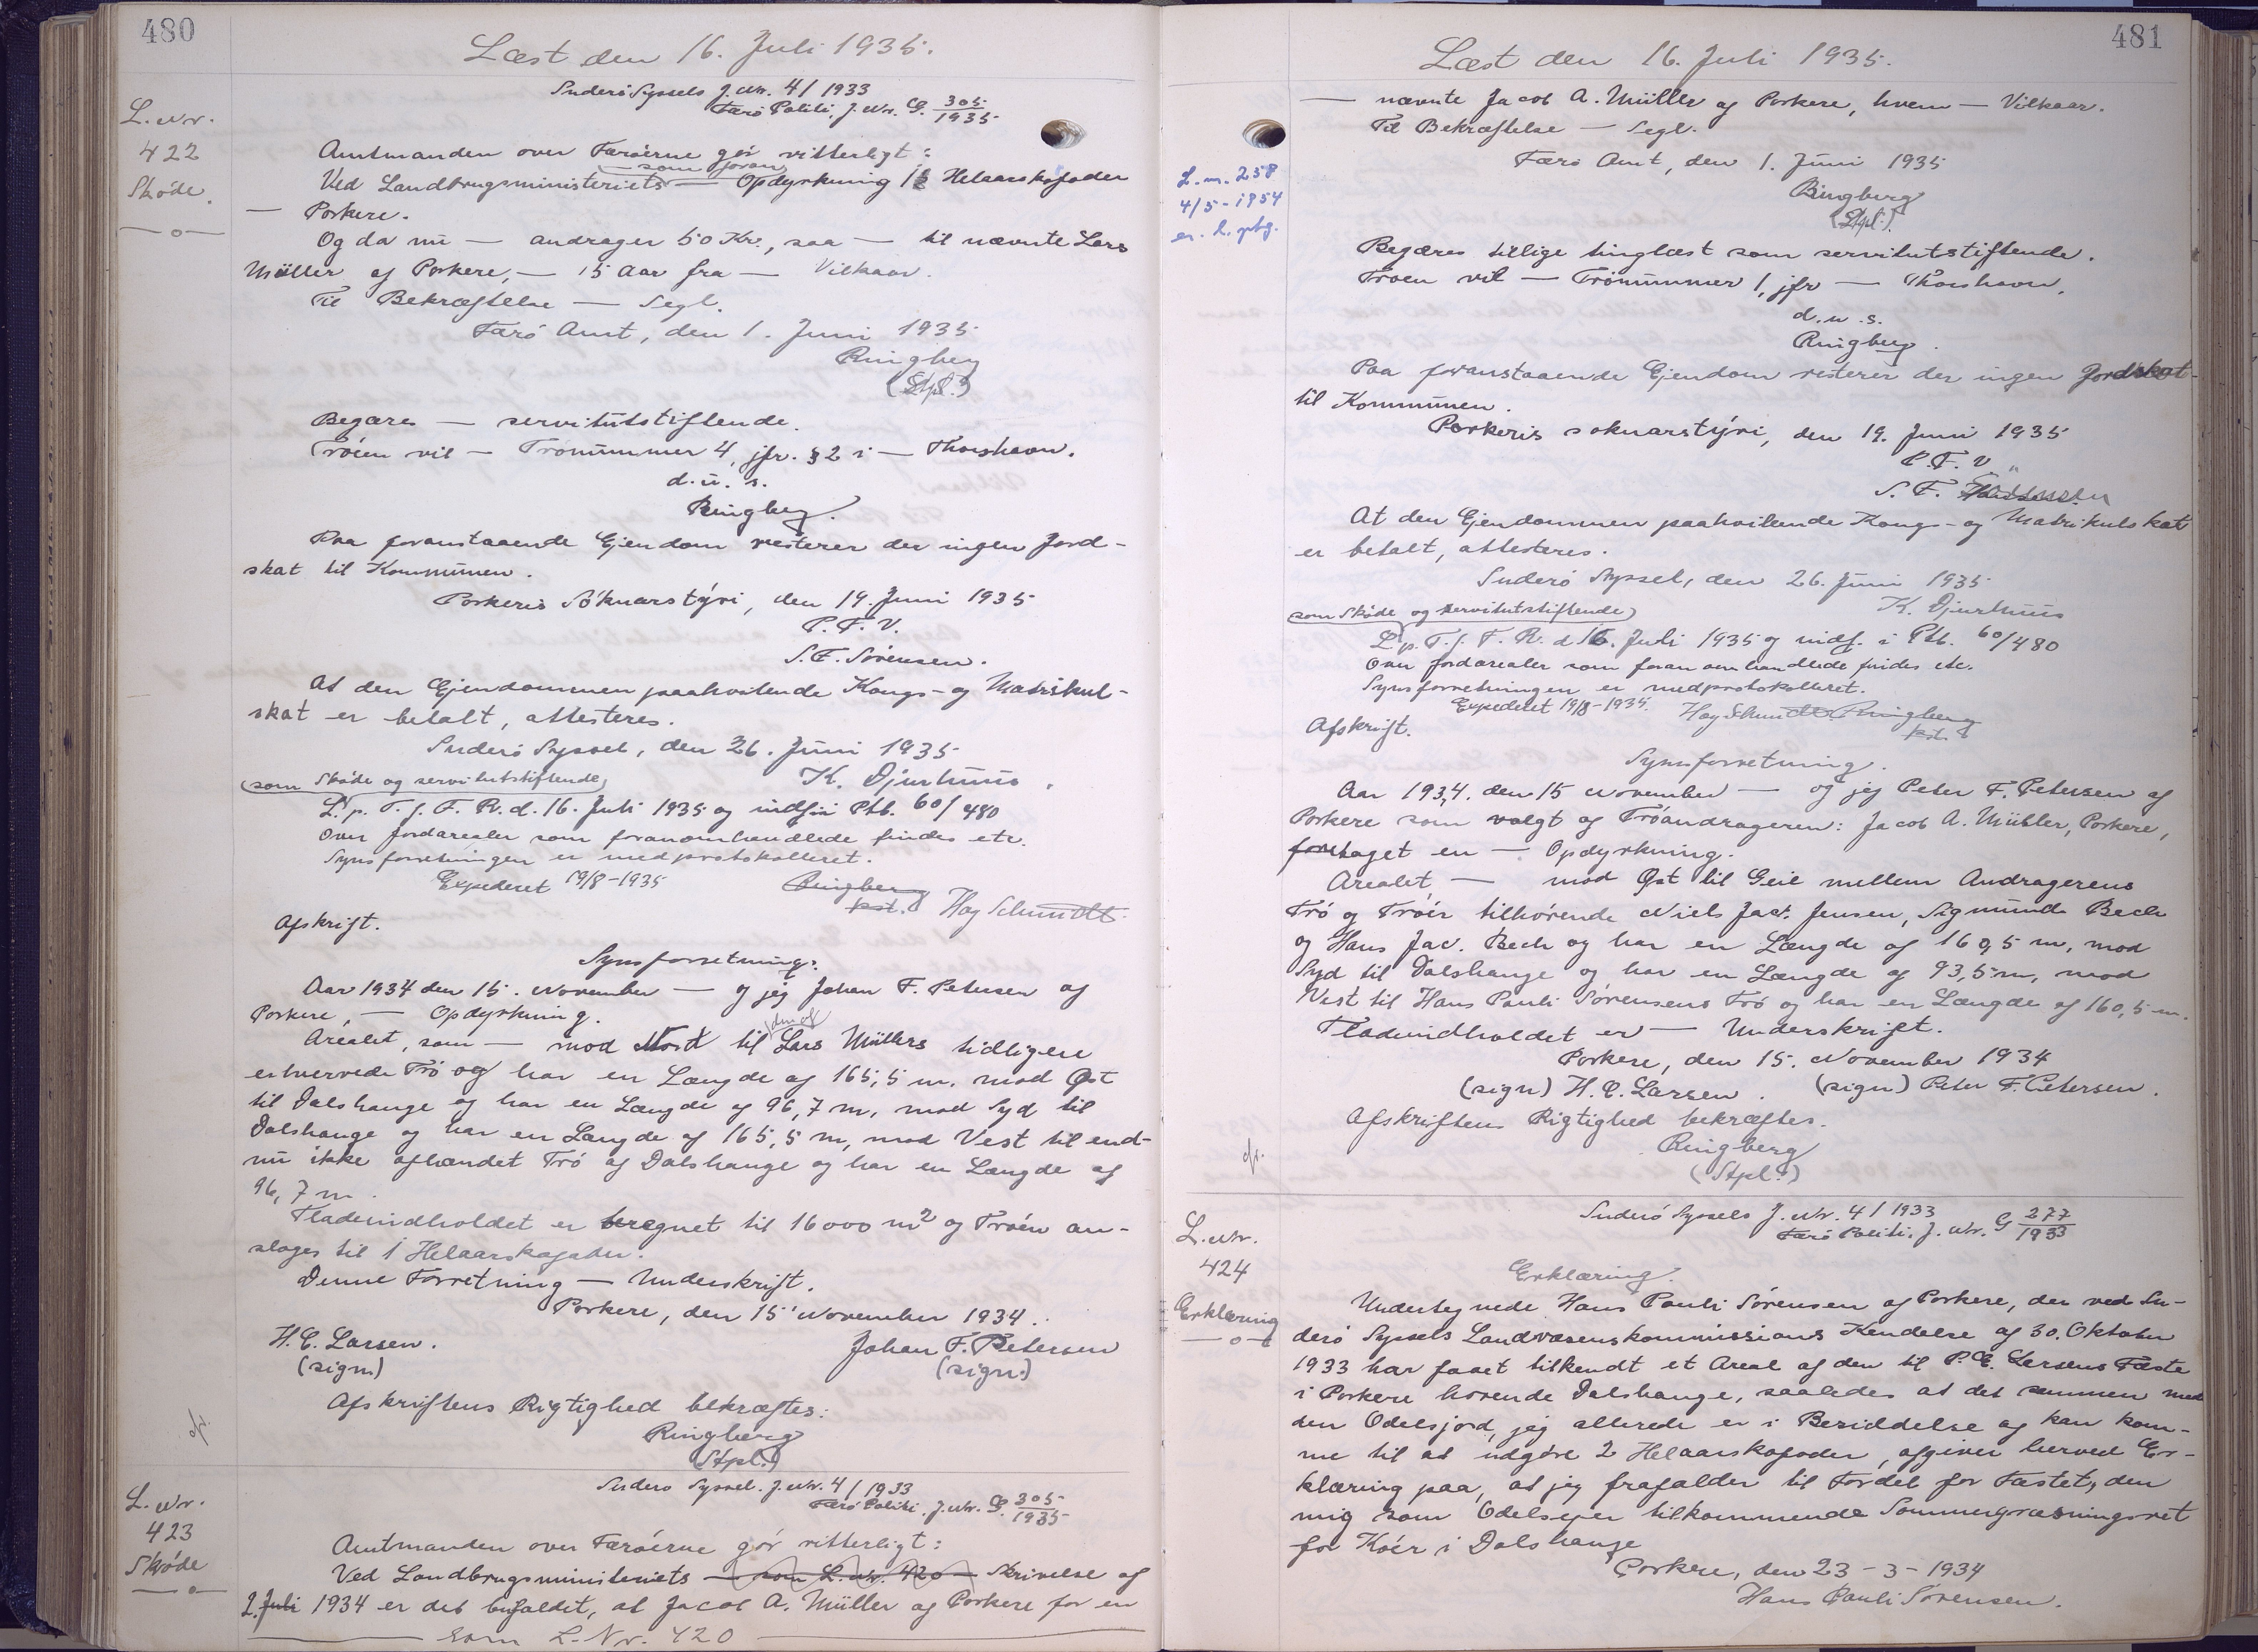 480
Læst den 16. Juli 1935.
Suderö Syssels J. Nr. 4/1933
Færö Politi. J. Nr. G. 305/1935
L. Nr.
422
Sköde.
—o—
Amtmanden over Færöerne gör vitterligt:
som foran
Ved Landbrugsministeriets — Opdyrkning 1 Helaarskofoder
— Porkere.
Og da nu — andrager 50 Kr., saa — til nævnte Lars
Müller af Porkere, — 15 Aar fra — Vilkaar.
Til Bekræftelse — Segl.
Færö Amt, den 1. Juni 1935
Ringberg
(Stpl.)
Begæres — servitutstiftende.
Tröen vil — Trönummer 4, jfr. § 2 i — Thorshavn.
d. u. s.
Ringberg.
Paa foranstaaende Ejendom resterer der ingen Jord-
skat til Kommunen.
Porkeris Söknarstýri, den 19. Juni 1935
P. F. V.
S. F. Sörensen.
At den Ejendommen paahvilende Kongs- og Matrikul-
skat er betalt, attesteres.
Suderö Syssel, den 26. Juni 1935
K. Djurhuus.
(som Sköde og servitutstiftende)
L. p. T. f. F. R. d. 16. Juli 1935 og indf. i Ptb. 60/480
Over Jordarealer som foranomhandlede findes etc.
Synsforretningen er medprotokolleret.
Expederet 19/8-1935
Ringberg
kst.
Hay Schmidt.
Afskrift.
Synsforretning.
Aar 1934 den 15. November — og jeg Johan F. Petersen af
Porkere, — Opdyrkning.
Arealet, som — mod Nord til den af Lars Müllers tidligere
erhvervede Trö og har en Længde af 165,5 m. mod Øst
til Dalshauge og har en Længde af 96,7 m, mod Syd til
Dalshauge og har en Længde af 165,5 m, mod Vest til end-
nu ikke afhændet Trö af Dalshauge og har en Længde af
96,7 m.
Fladeindholdet er beregnet til 16000 m² og Tröen an-
slages til 1 Helaarskofoder.
Denne Forretning — Underskrift.
Porkere, den 15 November 1934.
H. E. Larsen.
Johan F. Petersen
(sign)
(sign.)
Afskriftens Rigtighed bekræftes:
Ringberg
(Stpl.)
L. Nr.
423
Sköde
—o—
Suderö Syssel. J. Nr. 4/1933
Færö Politi. J. Nr. G. 305/1935
Amtmanden over Færöerne gör vitterligt:
Ved Landbrugsministeriets — som L. Nr. 420 — Skrivelse af
2. Juli 1934 er det bifaldet, at Jacob A. Müller af Porkere for en
— som L. Nr. 420 —
481
Læst den 16. Juli 1935.
— nævnte Jacob A. Müller af Porkere, hvem — Vilkaar.
Til Bekræftelse — Segl.
Færö Amt, den 1. Juni 1935
Ringberg
(Stpl.)
L. nr. 258
4/5-1954
Begæres tillige tinglæst som servitutstiftende.
Tröen vil — Trönummer 1, jfr — Thorshavn.
d. u. s.
Ringberg.
Paa foranstaaende Ejendom resterer der ingen Jordskat
til Kommunen.
Porkeris soknarstýri, den 19. Juni 1935
P. F. V.
S. F.
At den Ejendommen paahvilende Kongs- og Matrikulskat
er betalt, attesteres.
Suderö Syssel, den 26. Juni 1935
K. Djurhuus
(som Sköde og servitutstiftende)
L. p. T. f. F. R. d. 16. Juli 1935 og indf. i Ptb. 60/480
Over Jordarealer som foran omhandlede findes etc.
Synsforretningen er medprotokolleret.
Expederet 19/8-1935. Hay Schmidt Ringberg
kst.
Afskrift.
Synsforretning.
Aar 1934. den 15 November — og jeg Peter F. Petersen af
Porkere som valgt af Tröandrageren: Jacob A. Müller, Porkere,
foretaget en — Opdyrkning.
Arealet, — mod Øst til Geil mellem Andragerens
Trö og Tröer tilhörende Niels Jac. Jensen, Sigmund Bech
og Hans Jac. Bech og har en Længde af 160,5 m, mod
Syd til Dalshauge og har en Længde af 93,5 m, mod
Vest til Hans Pauli Sörensens Trö og har en Længde af 160,5 m.
Fladeindholdet er — Underskrift.
Porkere, den 15. November 1934
(sign) H. E. Larsen. (sign) Peter F. Petersen.
Afskriftens Rigtighed bekræftes.
Ringberg
(Stpl.)
L. Nr.
424
Erklæring
—o—
Suderö Syssels J. Nr. 4/1933
Færö Politi. J. Nr. G 277/1933
Erklæring.
Undertegnede Hans Pauli Sörensen af Porkere, der ved Su-
derö Syssels Landvæsenskommissions Kendelse af 30. Oktober
1933 har faaet tilkendt et Areal af den til P. E. Larsens Fæste
i Porkere hörende Dalshauge, saaledes at det sammen med
den Odelsjord, jeg allerede er i Besiddelse af kan kom-
me til at udgöre 2 Helaarskofoder, afgiver herved Er-
klæring paa, at jeg frafalder til Fordel for Fæstet, den
mig som Odelsejer tilkommende Sommergræsningsret
for Köer i Dalshauge
Porkere, den 23-3-1934
Hans Pauli Sörensen.